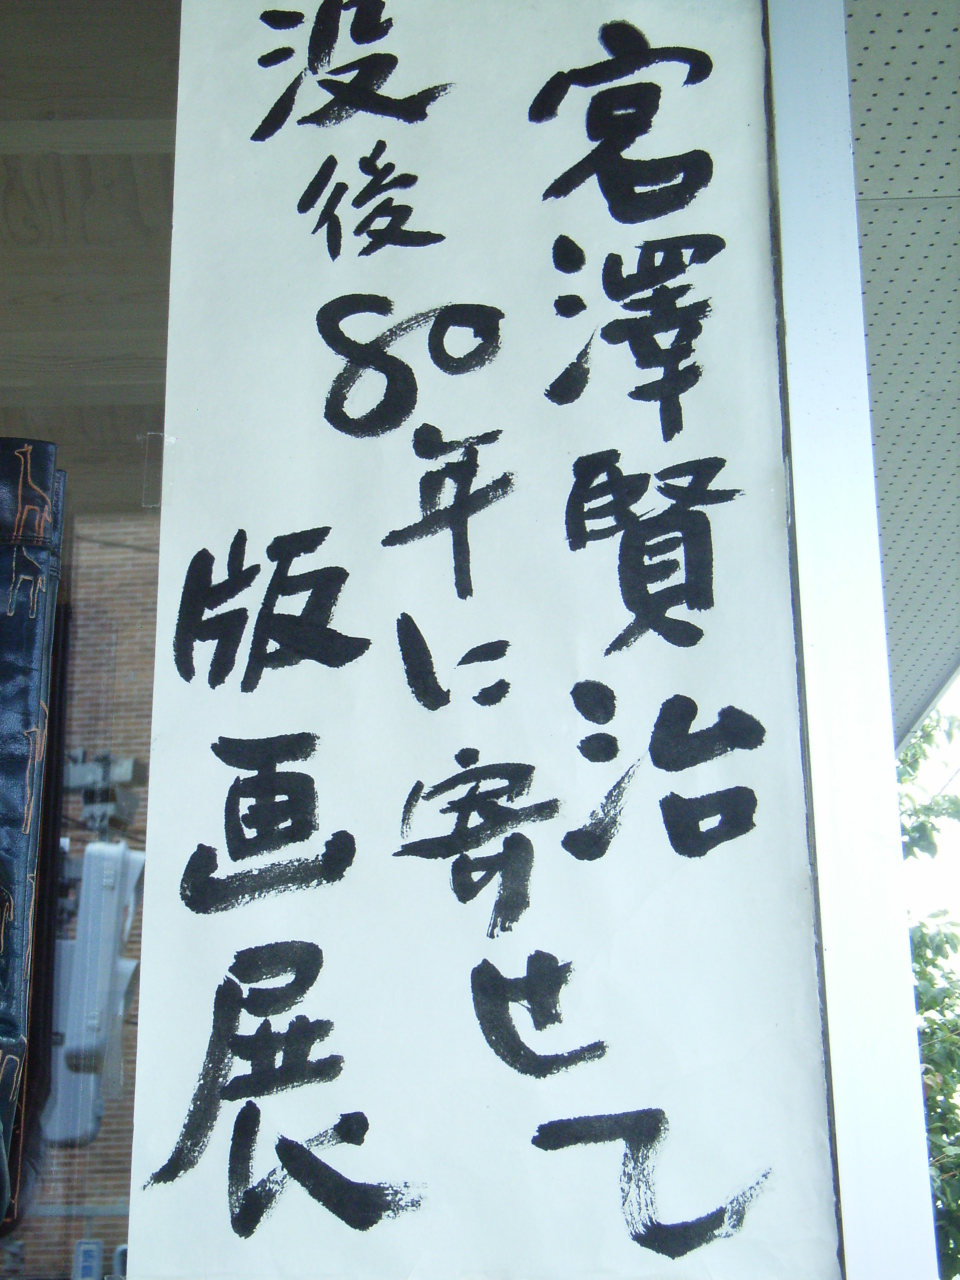 宮澤賢治
没後80年に寄せて
版画展